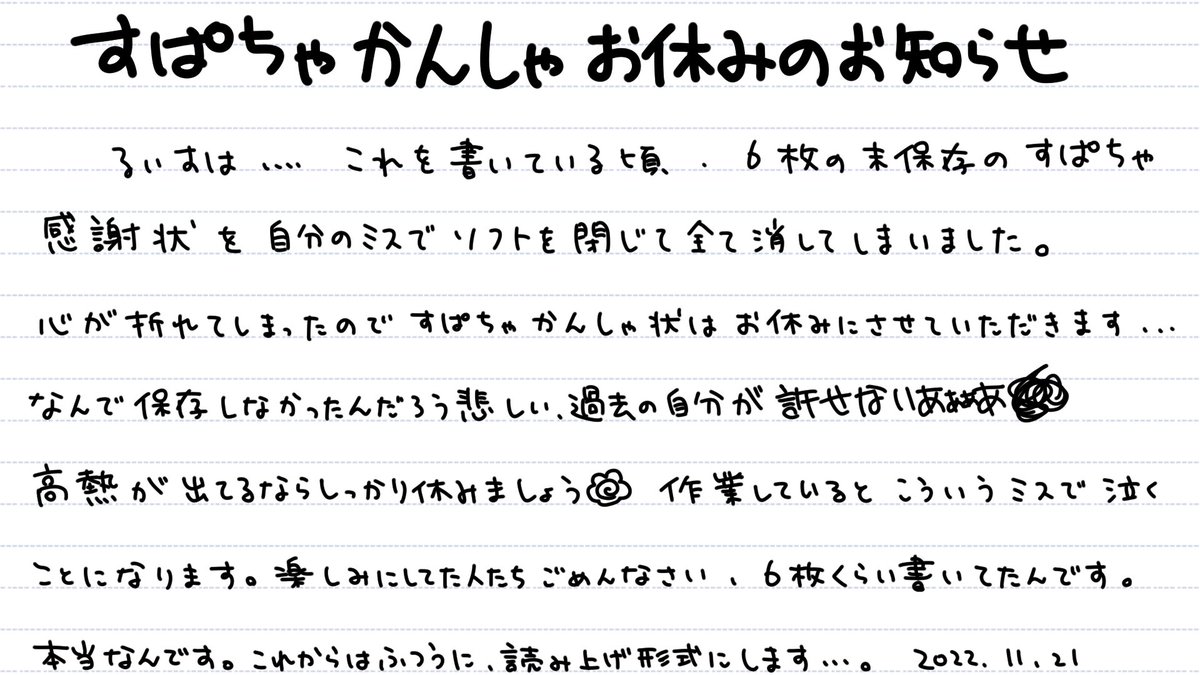 すぱちゃかんしゃお休みのお知らせ
るいすは‥‥ これを書いている頃、6枚の未保存のすぱちゃ
感謝状を自分のミスでソフトを閉じて全て消してしまいました。
心が折れてしまったのですぱちゃかんしゃ状はお休みにさせていただきます...
なんで保存しなかったんだろう悲しい、過去の自分が許せないあぁぁあ
高熱が出てるならしっかり休みましょう 作業しているとこういうミスで泣く
ことになります。楽しみにしてた人たちごめんなさい、6枚くらい書いてたんです。
本当なんです。これからはふつうに、読み上げ形式にします...。 2022.11.21